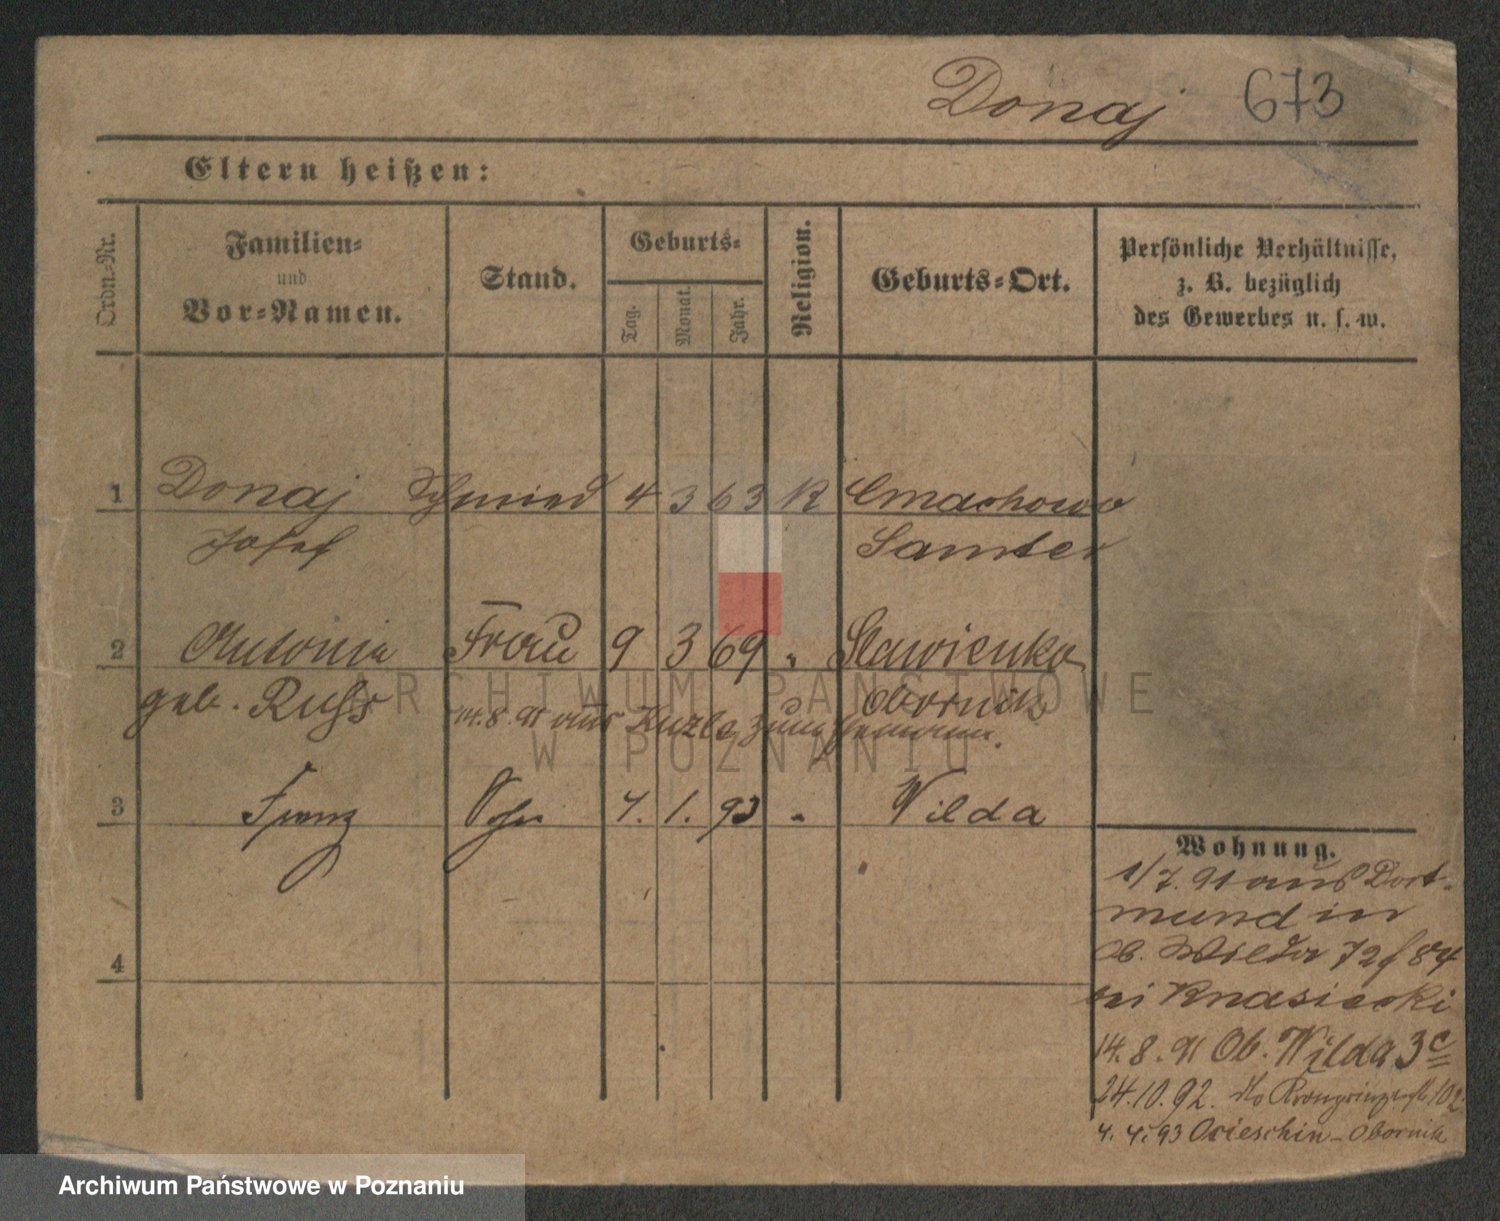 Donaj 673
Eltern heißen:
Ordn.-Nr.
Familien-
und
Vor-Namen.
Stand.
Geburts-
Tag.
Monat.
Jahr.
Religion.
Geburts-Ort.
Persönliche Verhältnisse,
z. B. bezüglich
des Gewerbes u. s. w.
1 Donaj Schmied 4 3 63 K Cmachowo
Josef Samter
2 Antonia Frau 9 3 69 " Slawienko
geb. Russ Obornik
14.8.91 aus zum
ARCHIWUM PAŃSTWOWE
W POZNANIU
3 Franz Sohn 4. 1. 93 " Wilda
4
Wohnung.
1/7. 91 aus Dort-
mund in
Ob. Wilda 72 / 84
bei Knasiecki
14. 8. 91 Ob. Wilda 3c
24. 10. 92. Kronprinzenstr. 102
4. 4. 93 Obornik
Archiwum Państwowe w Poznaniu